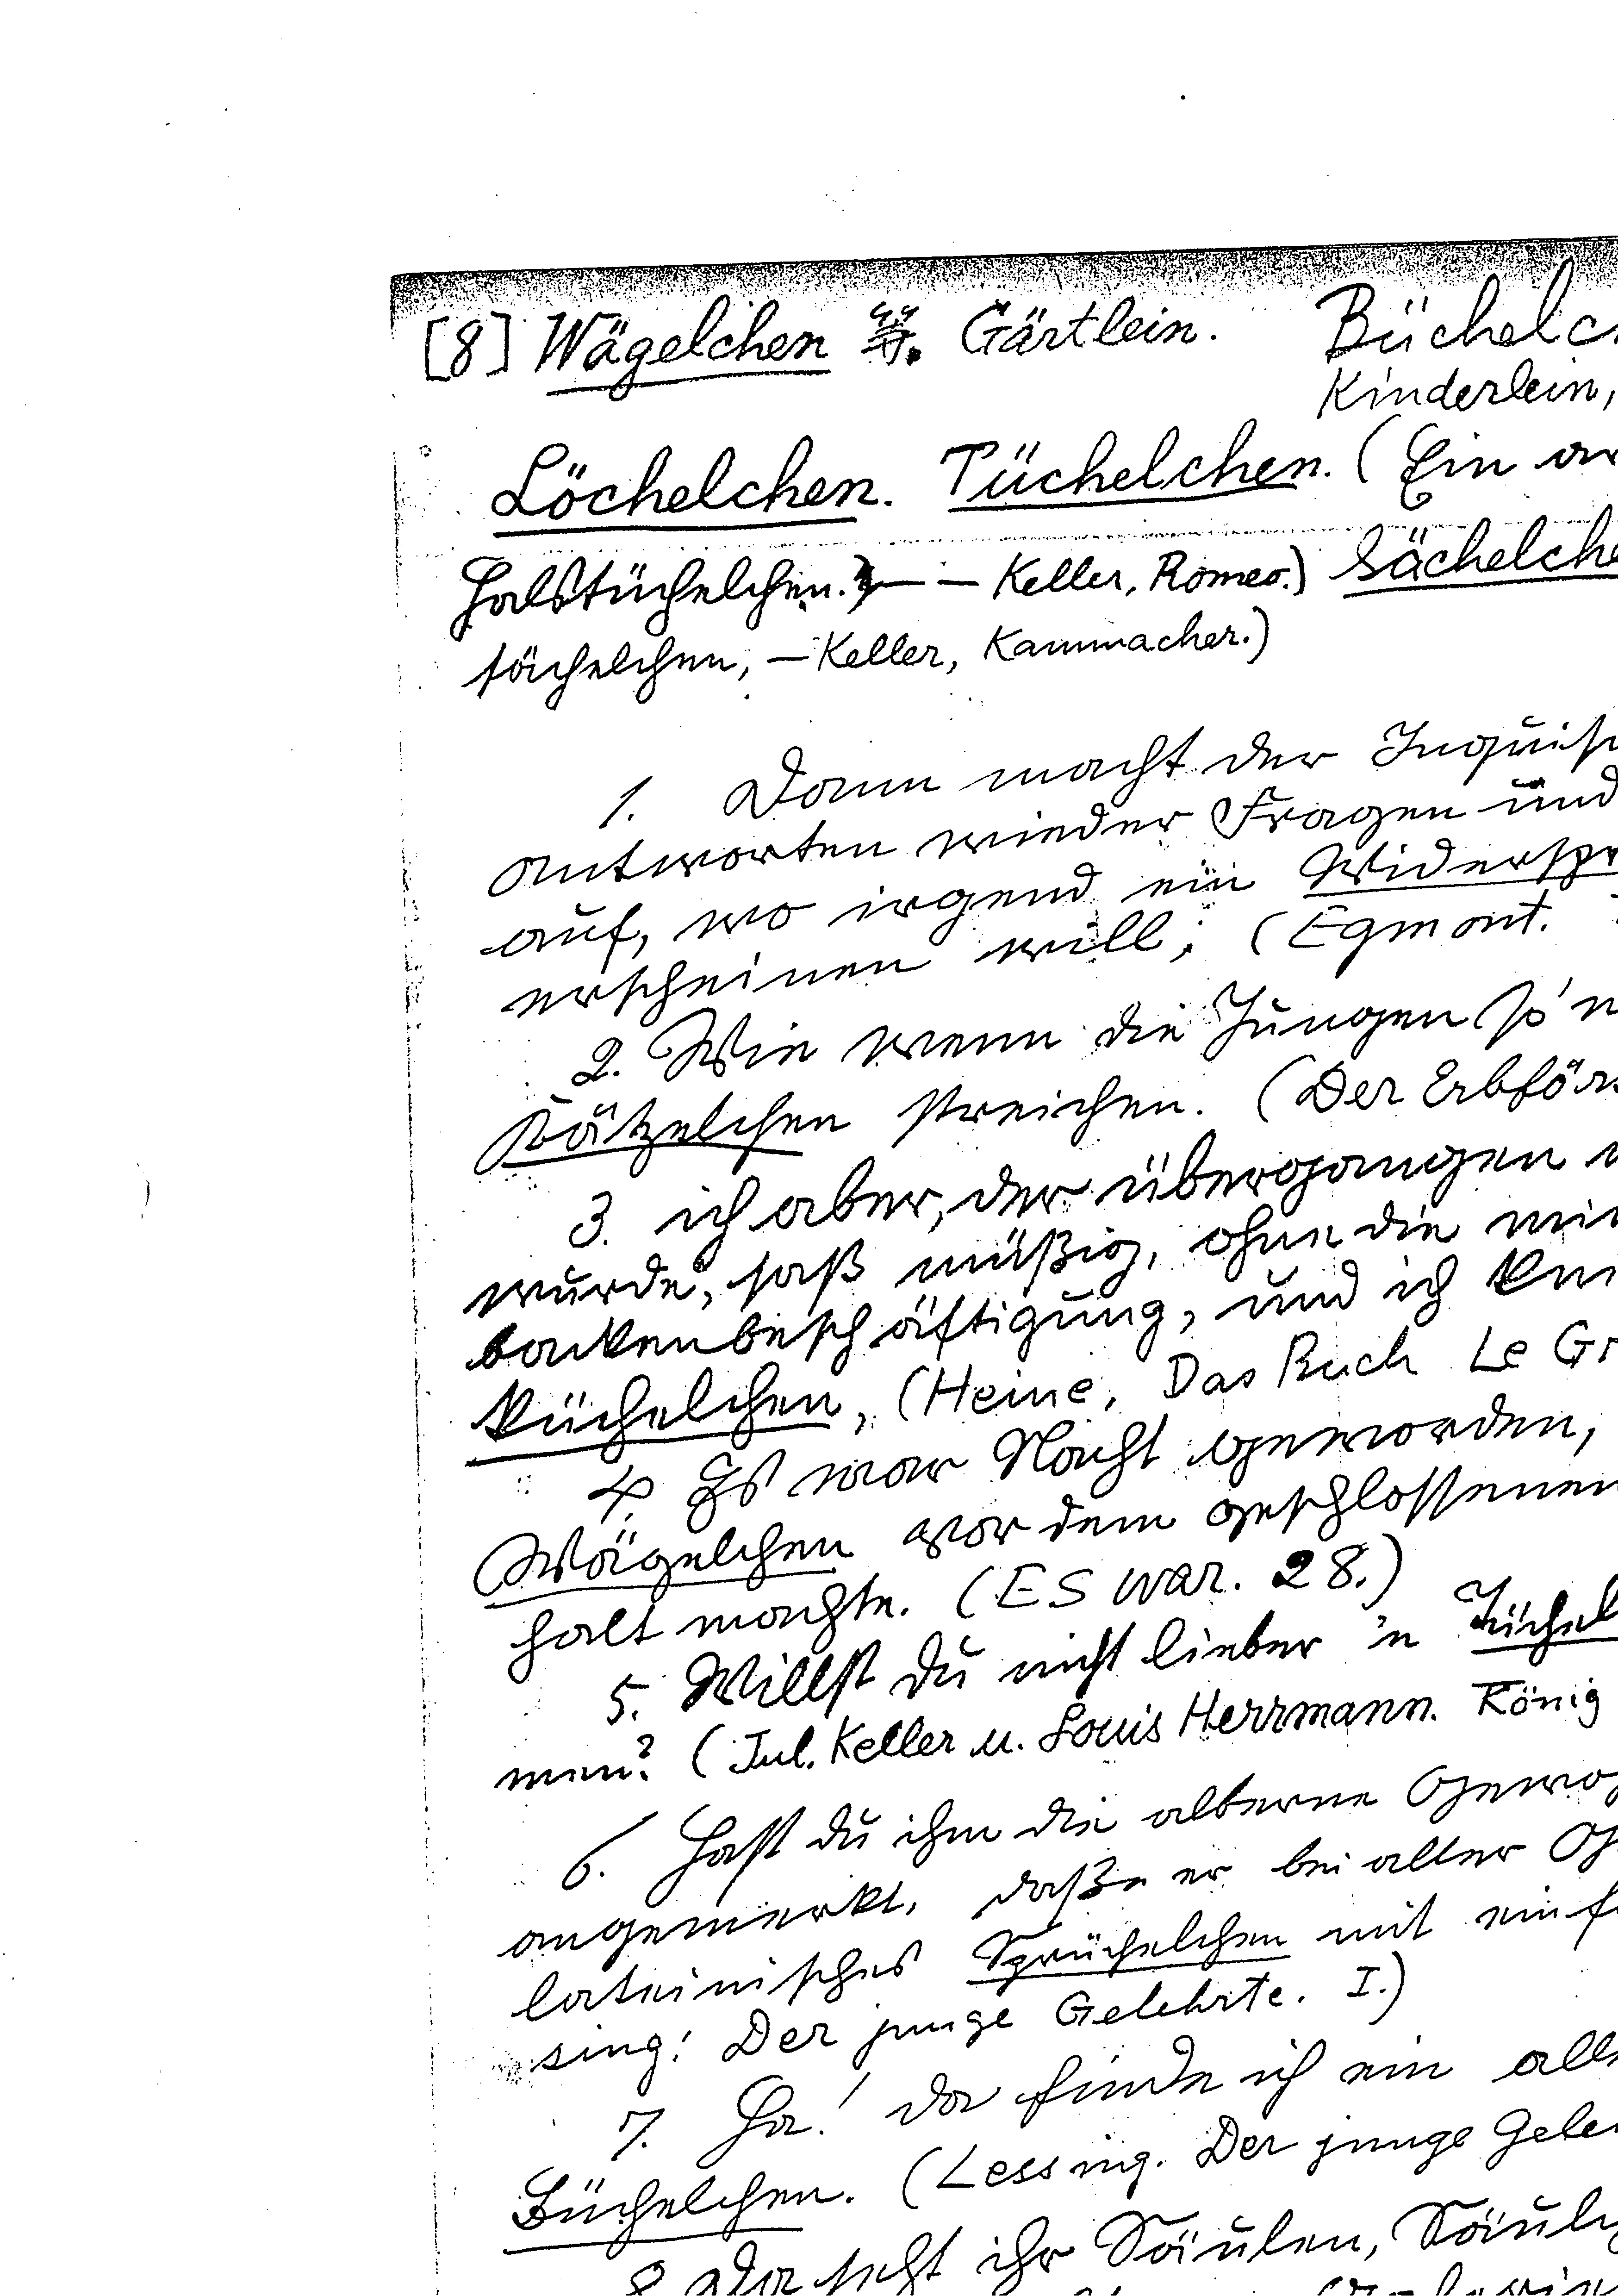 [8] Wägelchen Gärtlein. Büchelc
Kinderlein,
Löchelchen. Tüchelchen. (Ein ar
Halstüchelchen. — — Keller, Romeo.) Sächelche
sächelchen, — Keller, Kammacher.)
1. Dann macht der Inquisi
antworten wieder Fragen und
auf, wo irgend ein Widerspr
erscheinen will; (Egmont.
2. Wie wenn die Jungen so'n
Kätzelchen streichen. (Der Erbför
3. ich aber, der übergangen
wurde, saß müßig, ohne die min
backenbeschäftigung, und ich kne
küchelchen, (Heine, Das Buch Le Gr
4. Es war Nacht geworden,
Wägelchen vor dem geschlossenen
halt machte. (Es war. 28.)
5. Willst du nicht lieber 'n Tüchel
men? (Jul. Keller u. Louis Herrmann. König
6. Hast du ihm die alberne Gewoh
angemerkt, daß er bei aller Ge
lateinisches Sprüchelchen mit einf
sing: Der junge Gelehrte. I.)
7. Ha! da finde ich ein all
Büchelchen. (Lessing. Der junge Gele
8. Da seht ihr Säulen, Säul